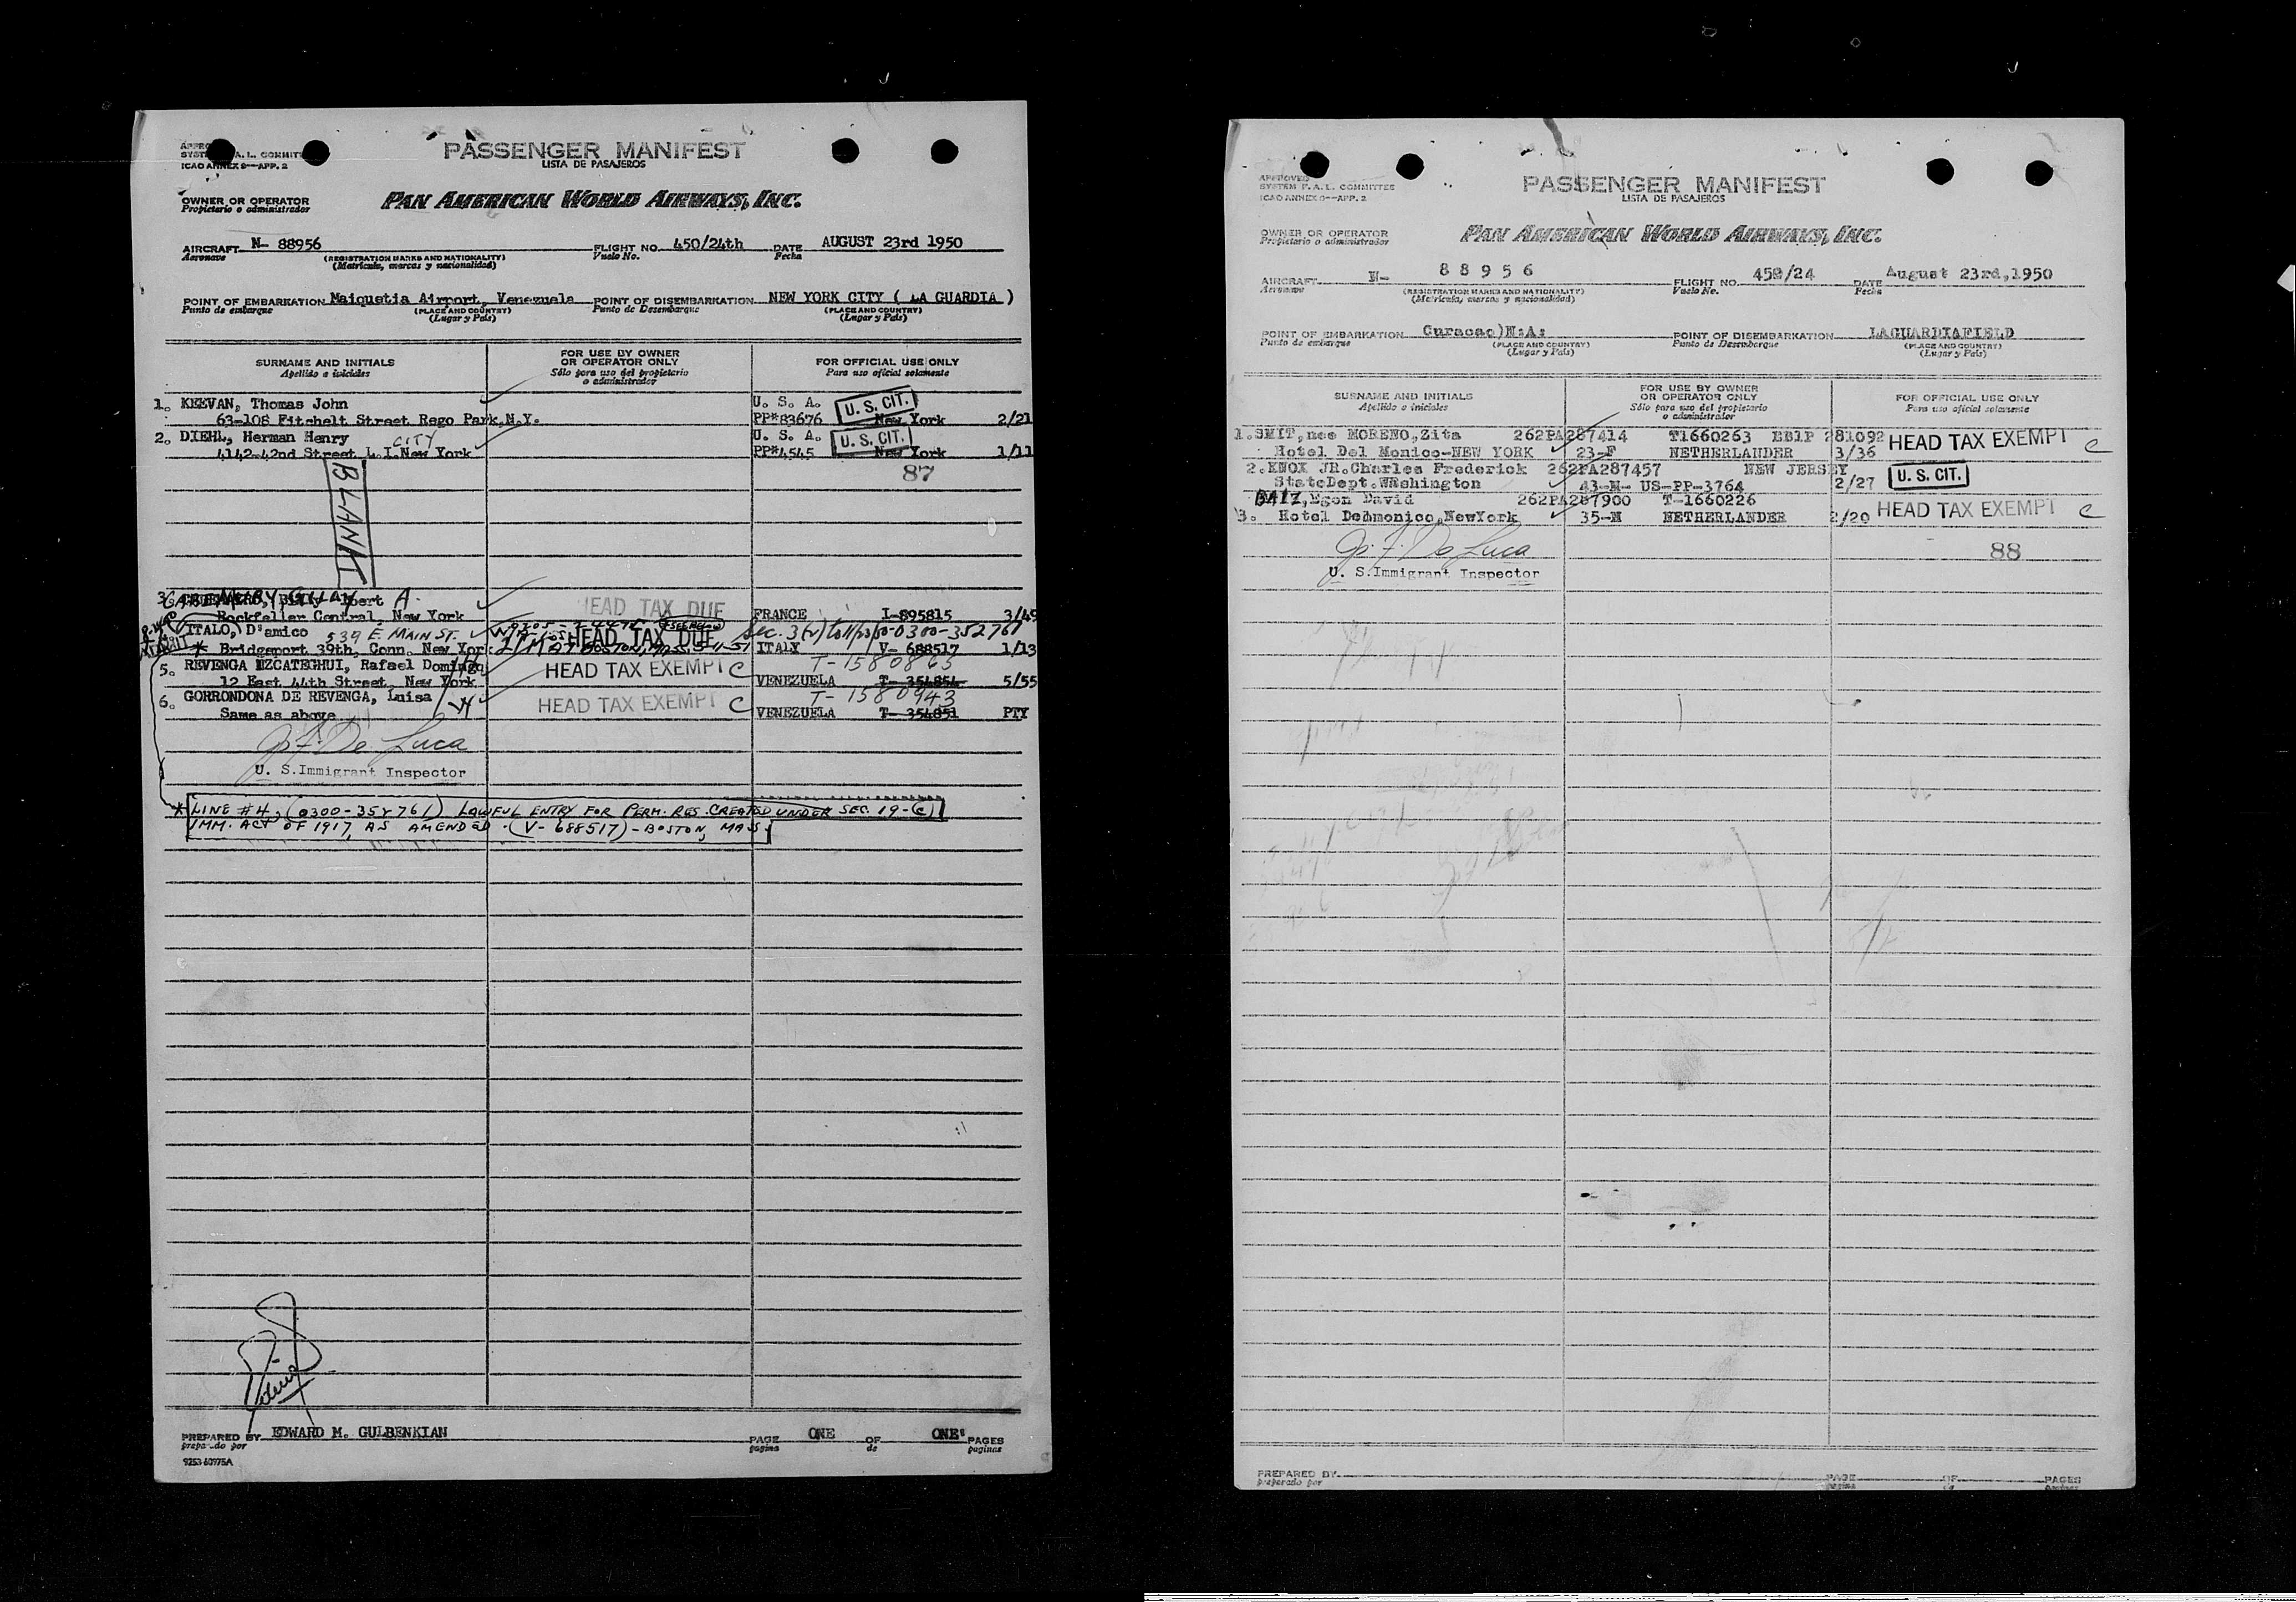 PASSENGER MANIFEST
LISTA DE PASAJEROS
ICAO ANNEX 9—APP. 2
OWNER OR OPERATOR
Propietario o administrador
PAN AMERICAN WORLD AIRWAYS, INC.
AIRCRAFT N- 88956 FLIGHT NO. 450/24th DATE AUGUST 23rd 1950
Aeronave (REGISTRATION MARKS AND NATIONALITY) Vuelo No. Fecha
(Matrícula, marcas y nacionalidad)
POINT OF EMBARKATION Maiquetia Airport, Venezuela POINT OF DISEMBARKATION NEW YORK CITY ( LA GUARDIA )
Punto de embarque (PLACE AND COUNTRY) Punto de Desembarque (PLACE AND COUNTRY)
(Lugar y País) (Lugar y País)
SURNAME AND INITIALS FOR USE BY OWNER OR OPERATOR ONLY FOR OFFICIAL USE ONLY
Apellido e iniciales Sólo para uso del propietario o administrador Para uso oficial solamente
1. KEEVAN, Thomas John U. S. A. U. S. CIT.
63-108 Fitchelt Street Rego Park, N.Y. PP#83676 New York 2/21
2. DIEHL, Herman Henry CITY U. S. A. U. S. CIT.
4142-42nd Street L.I. New York PP#4545 New York 1/11
87
BLANK
3. A. HEAD TAX DUE
Rockfeller Central, New York FRANCE I-895815 3/49
ITALO, D'amico 539 E. MAIN ST. HEAD TAX DUE 0300-352761
* Bridgeport 39th, Conn. New York BOSTON, MASS. ITALY V- 688517 1/13
5. REVENGA UZCATEGHUI, Rafael Domingo HEAD TAX EXEMPT C T-1580865
12 East 44th Street, New York VENEZUELA T- 354854 5/55
6. GORRONDONA DE REVENGA, Luisa HEAD TAX EXEMPT C T- 1580943
Same as above VENEZUELA T- 354851 PTY
J. F. De Luca
U. S. Immigrant Inspector
* LINE #4, (0300-352761) LAWFUL ENTRY FOR PERM. RES. CREATED UNDER SEC. 19-(C)
IMM. ACT OF 1917, AS AMENDED. (V- 688517) - BOSTON, MASS.
PREPARED BY EDWARD M. GULBENKIAN PAGE ONE OF ONE PAGES
preparado por pagina de paginas
PASSENGER MANIFEST
LISTA DE PASAJEROS
APPROVED
SYSTEM F. A. L. COMMITTEE
ICAO ANNEX 9—APP. 2
OWNER OR OPERATOR
Propietario o administrador
PAN AMERICAN WORLD AIRWAYS, INC.
AIRCRAFT N- 88956 FLIGHT NO. 450/24 DATE August 23rd,1950
Aeronave (REGISTRATION MARKS AND NATIONALITY) Vuelo No. Fecha
(Matrícula, marcas y nacionalidad)
POINT OF EMBARKATION Curacao)N:A: POINT OF DISEMBARKATION LAGUARDIAFIELD
Punto de embarque (PLACE AND COUNTRY) Punto de Desembarque (PLACE AND COUNTRY)
(Lugar y País) (Lugar y País)
SURNAME AND INITIALS FOR USE BY OWNER OR OPERATOR ONLY FOR OFFICIAL USE ONLY
Apellido e iniciales Sólo para uso del propietario o administrador Para uso oficial solamente
1.SMIT,nee MORENO,Zita 262PA287414 T1660263 281092 HEAD TAX EXEMPT C
Hotel Del Monico-NEW YORK 23-F NETHERLANDER 3/36
2.KNOX JR.Charles Frederick 262PA287457 NEW JERSEY U. S. CIT.
StateDept.WAshington 43-M- US-PP-3764 2/27
Egon David 262PA287900 T-1660226 HEAD TAX EXEMPT C
3. Hotel Dedmonico,NewYork 35-M NETHERLANDER 2/20
88
J. F. De Luca
U. S.Immigrant Inspector
PREPARED BY PAGE OF PAGES
preparado por